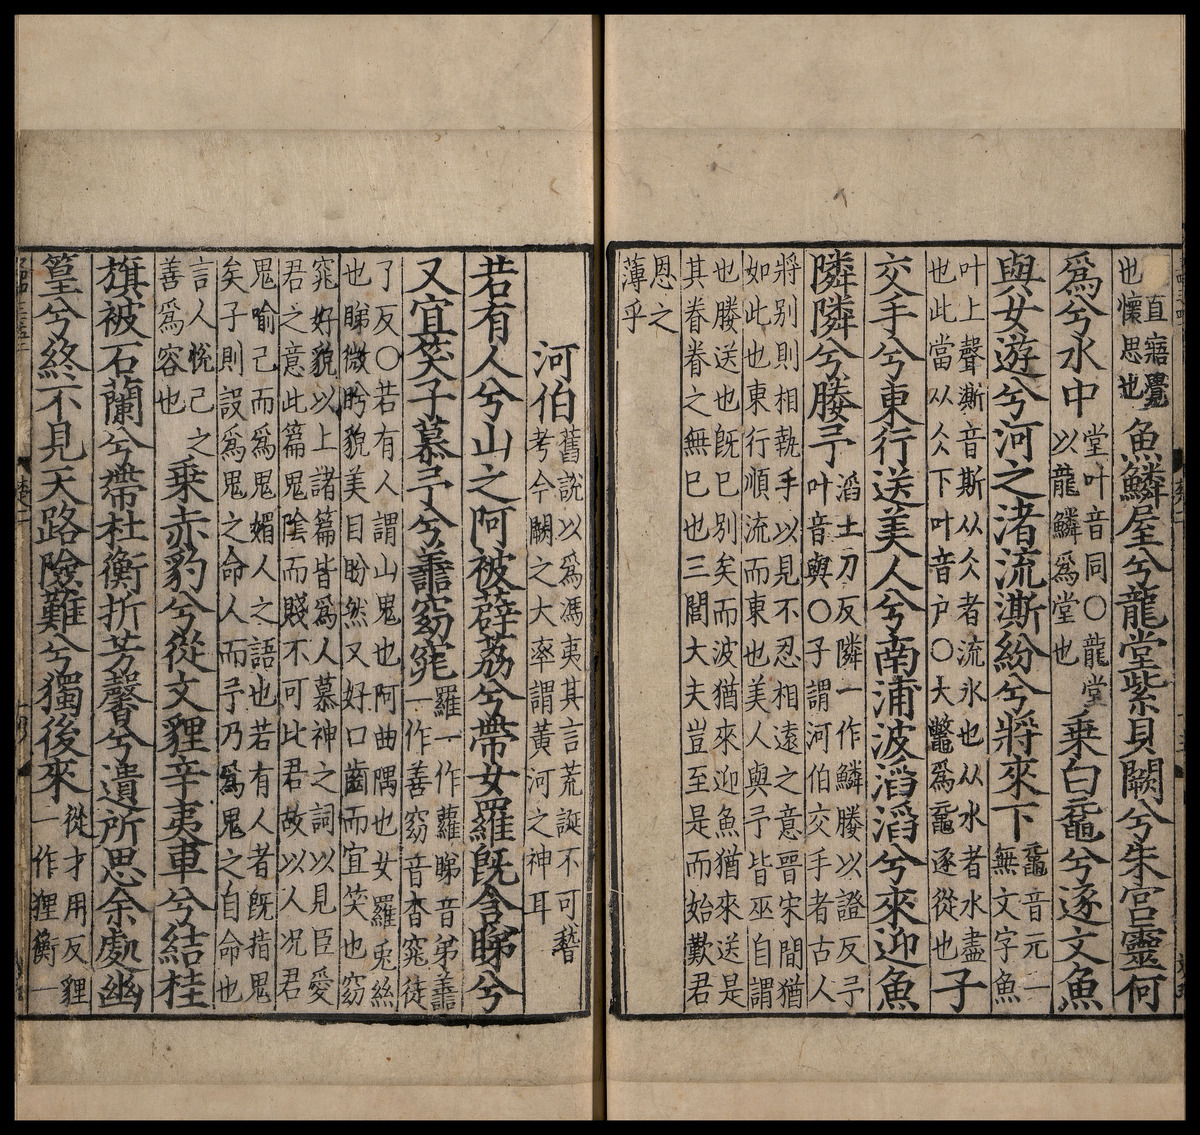 直寤覺
也懷思也
魚鱗屋兮龍堂紫貝闕兮朱宮靈何
爲兮水中
堂叶音同○龍堂
以龍鱗爲堂也
乗白黿兮逐文魚
與女遊兮河之渚流澌紛兮將來下
黿音元一
無文字魚
叶上聲澌音斯从仌者流氷也从水者水盡
也此當从仌下叶音户○大鼈爲黿逐從也
子
交手兮東行送美人兮南浦波滔滔兮來迎魚
隣隣兮媵予
滔土刀反隣一作鱗媵以證反予
叶音與○子謂河伯交手者古人
將别則相執手以見不忍相遠之意晉宋間猶
如此也東行順流而東也美人與予皆巫自謂
也媵送也旣已别矣而波猶來迎魚猶來送是
其眷眷之無已也三閭大夫豈至是而始歎君
恩之
薄乎
河伯
舊說以爲馮夷其言荒誕不可𥡴
考今闕之大率謂黃河之神耳
若有人兮山之阿被薜荔兮帶女羅旣含睇兮
又宜笑子慕予兮譱窈窕
羅一作蘿睇音弟譱
一作善窈音杳窕徒
了反○若有人謂山鬼也阿曲隅也女羅兎絲
也睇微眄貌美目盼然又好口齒而宜笑也窈
窕好貌以上諸篇皆爲人慕神之詞以見臣愛
君之意此篇鬼陰而賤不可比君故以人况君
鬼喻己而爲鬼媚人之語也若有人者旣指鬼
矣子則設爲鬼之命人而予乃爲鬼之自命也
言人悅己之
善爲容也
乗赤豹兮從文貍辛夷車兮結桂
旗被石蘭兮帶杜衡折芳馨兮遺所思余處幽
篁兮終不見天路險難兮獨後來
從才用反貍
一作狸衡一